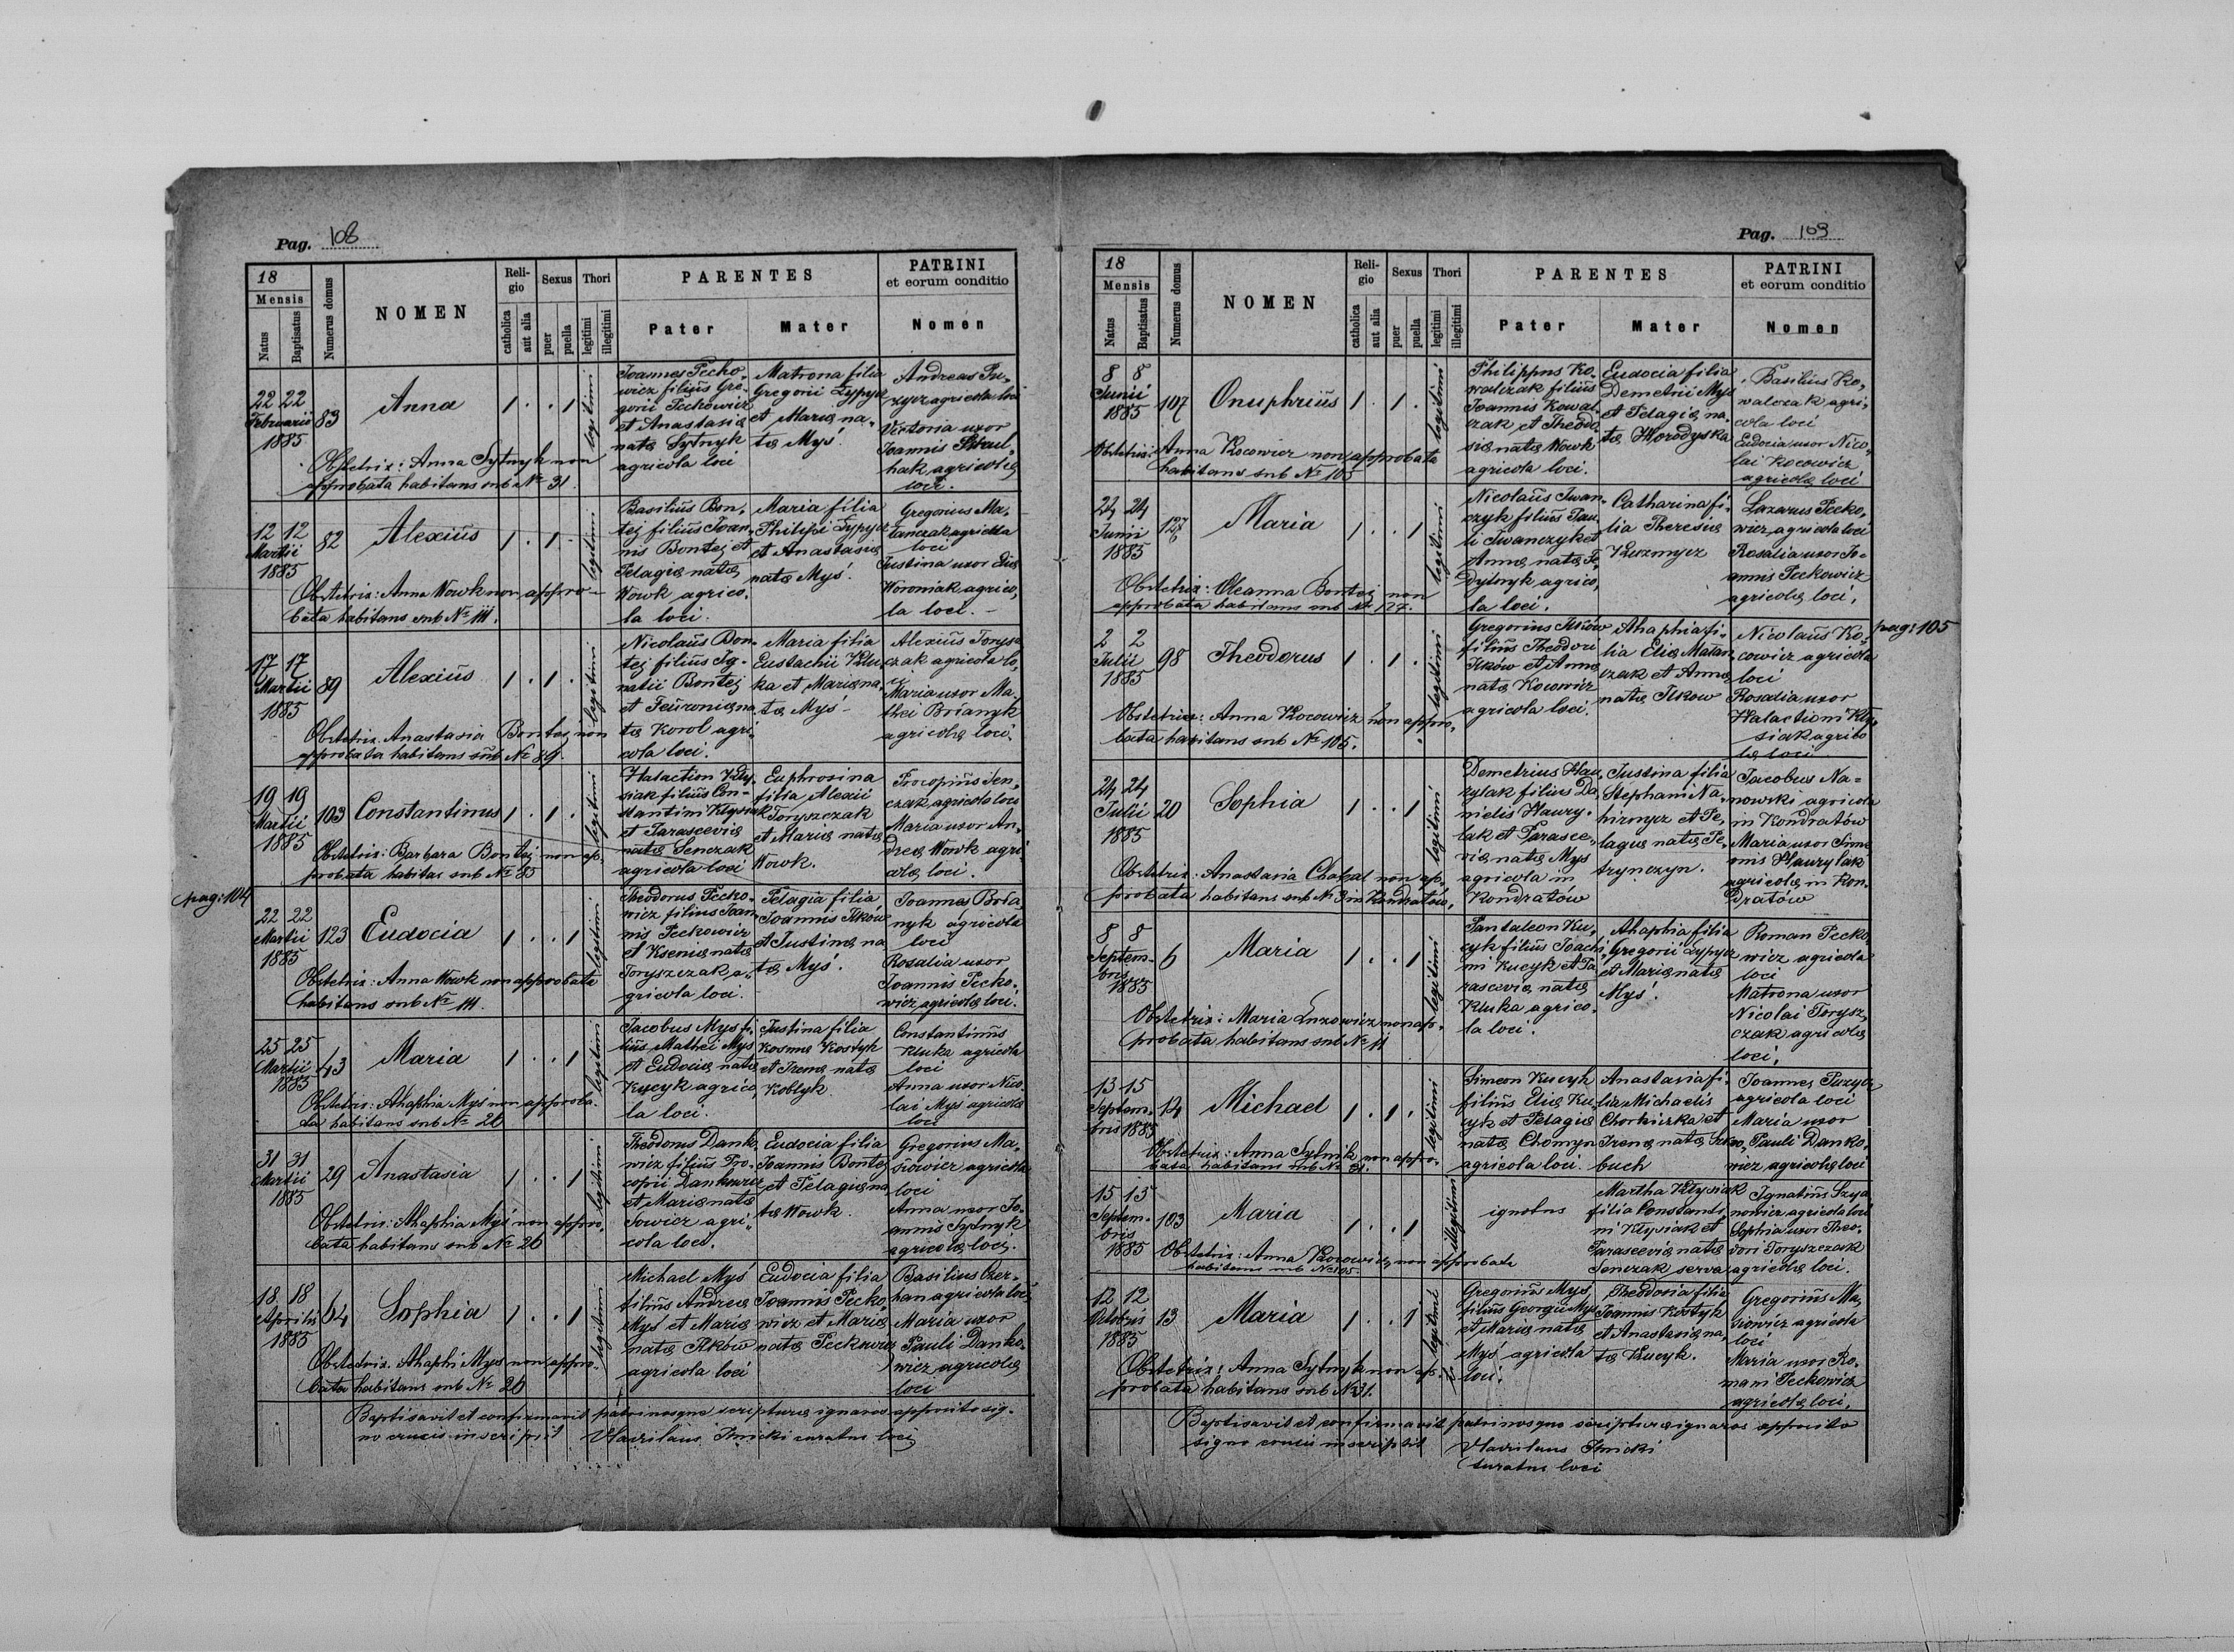 Pag. 108
18
Mensis
Natus
Baptisatus
Numerus domus
NOMEN
Reli-
gio
catholica
aut alia
Sexus
puer
puella
Thori
legitimi
illegitimi
PARENTES
Pater
Mater
PATRINI
et eorum conditio
Nomen
22 22
Februarii
1885
83
Anna
1 . . 1
legitimi
Joannes Pecko-
wicz filius Gre-
gorii Peckowicz
et Anastasiæ
natæ Sytnyk
agricola loci
Matrona filia
Gregorii Lypycz
et Mariæ na-
tæ Myś.
Andreas Pu-
zycz agricola loci
Victoria uxor
Joannis
hak agricolæ
loci.
Obstetrix: Anna Sytnyk non
approbata habitans sub № 31.
12 12
Martii
1885
82
Alexius
1 . 1 .
legitimi
Basilius Bon-
tej filius Joan-
nis Bontej et
Pelagiæ natæ
Wowk agrico-
la loci.
Maria filia
Philippi Lypycz
et Anastasiæ
natæ Myś.
Gregorius Ma-
tanczak agricola
loci
Justina uxor Eliæ
Woroniak agrico-
la loci. –
Obstetrix: Anna Wowk non appro-
bata habitans sub № 111.
17 17
Martii
1885
89
Alexius
1 . 1 .
legitimi
Nicolaus Bon-
tej filius Ig-
natii Bontej
et Feuroniæ na-
tæ Korol agri-
cola loci.
Maria filia
Eustachii Klu-
ka et Mariæ na-
tæ Myś –
Alexius Torysz-
czak agricola lo-
ci
Maria uxor Ma-
thei Brianyk
agricolæ loci.
Obstetrix Anastasia Bontej non
approbata habitans sub № 89.
19 19
Martii
1885
103
Constantinus
1 . 1 .
legitimi
Halaction Kly-
siak filius Con-
stantini Klysiak
et Parasceviæ
natæ Senczak
agricola loci
Euphrosina
filia Alexii
Toryszczak
et Mariæ natæ
Wowk.
Procopius Sen-
czak agricola loci
Maria uxor An-
dreæ Wowk agri-
colæ loci.
Obstetrix: Barbara Bontej non ap-
probata habitas sub № 85
pag: 104
22 22
Martii
1885
123
Eudocia
1 . . 1
legitimi
Theodorus Pecko-
wicz filius Joan-
nis Peckowicz
et Kseniæ natæ
Toryszczak a-
gricola loci.
Pelagia filia
Joannis Ilków
et Justinæ na-
tæ Myś.
Joannes Bria-
nyk agricola
loci
Rosalia uxor
Joannis Pecko-
wicz agricolæ loci.
Obstetrix: Anna Wowk non approbata
habitans sub № 111.
25 25
Martii
1885
43
Maria
1 . . 1
legitimi
Jacobus Mys fi-
lius Mathei Mys
et Eudociæ natæ
Kucyk agrico-
la loci.
Justina filia
Kosmæ Kostyk
et Irenæ natæ
Koblyk.
Constantinus
Kluka agricola
loci
Anna uxor Nico-
lai Myś agricolæ
loci
Obstetrix: Ahaphia Myś non approba-
ta habitans sub № 26
31 31
Martii
1885
29
Anastasia
1 . . 1
legitimi
Theodorus Danko-
wicz filius Pro-
copii Dankowicz
et Mariæ natæ
Sowicz agri-
cola loci.
Eudocia filia
Joannis Bontej
et Pelagiæ na-
tæ Wowk.
Gregorius Ma-
siowicz agricola
loci
Anna uxor Jo-
annis Sytnyk
agricolæ loci.
Obstetrix: Ahaphia Myś non appro-
bata habitans sub № 26
18 18
Aprilis
1885
64
Sophia
1 . . 1
legitimi
Michael Myś
filius Andreæ
Myś et Mariæ
natæ Ilków
agricola loci
Eudocia filia
Joannis Pecko-
wicz et Mariæ
natæ Peckowicz
Basilius Czer-
han agricola loci
Maria uxor
Pauli Danko-
wicz agricolæ
loci
Obstetrix. Ahaphi Mys non appro-
bata habitans sub № 26
Baptisavit et confirmavit patrinosque scripturæ ignaros apposito sig-
no crucis inscripsit curatus loci
Pag. 109
18
Mensis
Natus
Baptisatus
Numerus domus
NOMEN
Reli-
gio
catholica
aut alia
Sexus
puer
puella
Thori
legitimi
illegitimi
PARENTES
Pater
Mater
PATRINI
et eorum conditio
Nomen
8 8
Junii
1885
107
Onuphrius
1 . 1 .
legitimi
Philippus Ko-
walczak filius
Joannis Kowal-
czak et Theodo-
siæ natæ Wowk
agricola loci.
Eudocia filia
Demetrii Myś
et Pelagiæ na-
tæ Horodyska
Basilius Ko-
walczak agri-
cola loci
Eudocia uxor Nico-
lai Kocowicz
agricolæ loci
Obstetrix: Anna Kocowicz non approbata
habitans sub № 105
24 24
Junii
1885
127
Maria
1 . . 1
legitimi
Nicolaus Iwan-
czyk filius Pau-
li Iwanczyk et
Annæ natæ Fe-
dytnyk agrico-
la loci.
Catharina fi-
lia Theresiæ
Kuzmycz
Lazarus Pecko-
wicz agricola loci
Rosalia uxor Jo-
annis Peckowicz
agricolæ loci.
Obstetrix: Oleanna Bontej non
approbata habitans sub № 127.
2 2
Julii
1885
98
Theodorus
1 . 1 .
legitimi
Gregorius Ilków
filius Theodori
Ilków et Annæ
natæ Kocowicz
agricola loci.
Ahaphia fi-
lia Eliæ Matan-
czak et Annæ
natæ Ilkow
Nicolaus Ko-
cowicz agricola
loci
Rosalia uxor
Halactioni Kly-
siak agrico
læ loci
pag: 105
Obstetrix: Anna Kocowicz non appro-
bata habitans sub № 105.
24 24
Julii
1885
20
Sophia
1 . . 1
legitimi
Demetrius Hau-
rylak filius Da-
nielis Haury-
lak et Parasce-
viæ natæ Mys
agricola in
Kondratów
Justina filia
Stephani Na-
hirnycz et Pe-
lagiæ natæ Pe-
trynczyn.
Jacobus Na-
nowski agricola
in Kondratów
Maria uxor Sime-
onis Haurylak
agricolæ in Kon-
dratów
Obstetrix. Anastasia Chakal non ap-
probata habitans sub № 3 in Kondratów.
8 8
Septem-
bris
1885
6
Maria
1 . . 1
legitimi
Pantaleon Ku-
cyk filius Joachi-
mi Kucyk et Pa-
rasceviæ natæ
Kluka agrico-
la loci.
Ahaphia filia
Gregorii Lypycz
et Mariæ natæ
Myś.
Roman Pecko-
wicz agricola
loci
Matrona uxor
Nicolai Torysz-
czak agricolæ
loci.
Obstetrix: Maria non ap-
probata habitans sub № 11
13 15
Septem-
bris 1885
14
Michael
1 . 1 .
legitimi
Simeon Kucyk
filius Eliæ Ku-
cyk et Pelagiæ
natæ Chomyn
agricola loci.
Anastasia fi-
lia Michaelis
et
Irenæ natæ
buch
Joannes Puzycz
agricola loci
Maria uxor
Pauli Danko-
wicz agricolæ loci
Obstetrix: Anna Sytnik non appro-
bata habitans sub № 31.
15 15
Septem-
bris
1885
103
Maria
1 . . 1
illegitimi
ignotus
Martha Klysiak
filia Constanti-
ni Klysiak et
Parasceviæ natæ
Senczak serva
Ignatius Szya-
nowicz agricola loci
Sophia uxor Theo-
dori Toryszczak
agricolæ loci.
Obstetrix: Anna Kocowicz non approbata
habitans sub № 105.
12 12
Octobris
1885
13
Maria
1 . . 1
legitimi
Gregorius Myś
filius Georgii Myś
et Mariæ natæ
Myś agricola
loci.
Theodosia filia
Joannis Kostyk
et Anastasiæ na-
tæ Kucyk.
Gregorius Ma-
siowicz agricola
loci
Maria uxor Ro-
mani Peckowicz
agricolæ loci.
Obstetrix: Anna Sytnyk non ap-
probata habitans sub № 31.
Baptisavit et confirmavit patrinosque scripturæ ignaros apposito
signo crucis inscripsit
curatus loci